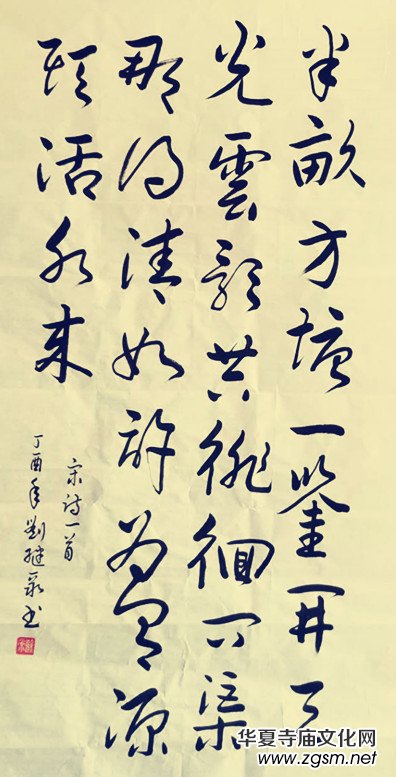 半畝方塘一鑒開天
光雲影共徘徊問渠
那得清如許為有源
頭活水來
宋诗一首
丁酉年劉继书
华夏寺庙文化网
www.zgsm.net